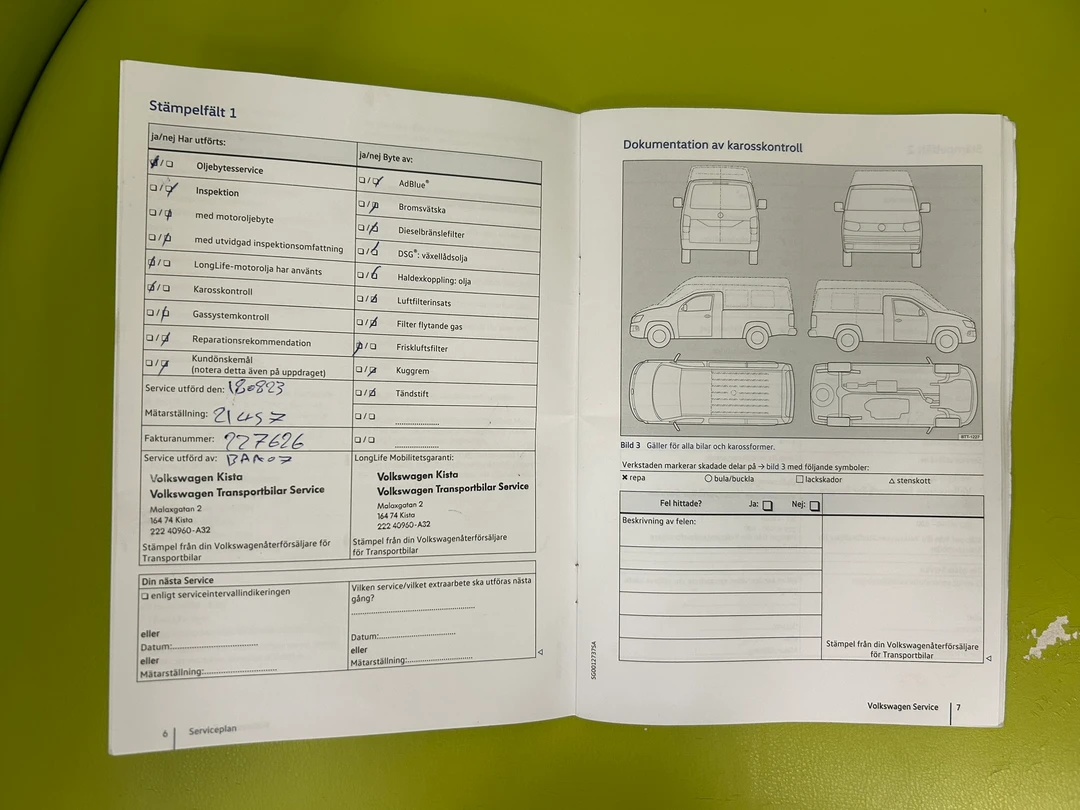 Stämpelfält 1
ja/nej Har utförts:
Oljebytesservice
Inspektion
med motoroljebyte
med utvidgad inspektionsomfattning
LongLife-motorolja har använts
Karosskontroll
Gassystemkontroll
Reparationsrekommendation
Kundönskemål
(notera detta även på uppdraget)
ja/nej Byte av:
AdBlue®
Bromsvätska
Dieselbränslefilter
DSG®: växellådsolja
Haldexkoppling: olja
Luftfilterinsats
Filter flytande gas
Friskluftsfilter
Kuggrem
Tändstift
Service utförd den: 180823
Mätarställning: 21457
Fakturanummer: 227626
Service utförd av:
Volkswagen Kista
Volkswagen Transportbilar Service
Malaxgatan 2
164 74 Kista
222 40960-A32
Stämpel från din Volkswagenåterförsäljare för
Transportbilar
LongLife Mobilitetsgaranti:
Volkswagen Kista
Volkswagen Transportbilar Service
Malaxgatan 2
164 74 Kista
222 40960-A32
Stämpel från din Volkswagenåterförsäljare
för Transportbilar
Din nästa Service
enligt serviceintervallindikeringen
eller
Datum:
eller
Mätarställning:
Vilken service/vilket extraarbete ska utföras nästa
gång?
Datum:
eller
Mätarställning:
6 Serviceplan
Dokumentation av karosskontroll
B7T-1227
Bild 3 Gäller för alla bilar och karossformer.
Verkstaden markerar skadade delar på → bild 3 med följande symboler:
✖ repa ○ bula/buckla □ lackskador △ stenskott
Fel hittade? Ja: Nej:
Beskrivning av felen:
Stämpel från din Volkswagenåterförsäljare
för Transportbilar
SG0012737SA
Volkswagen Service 7